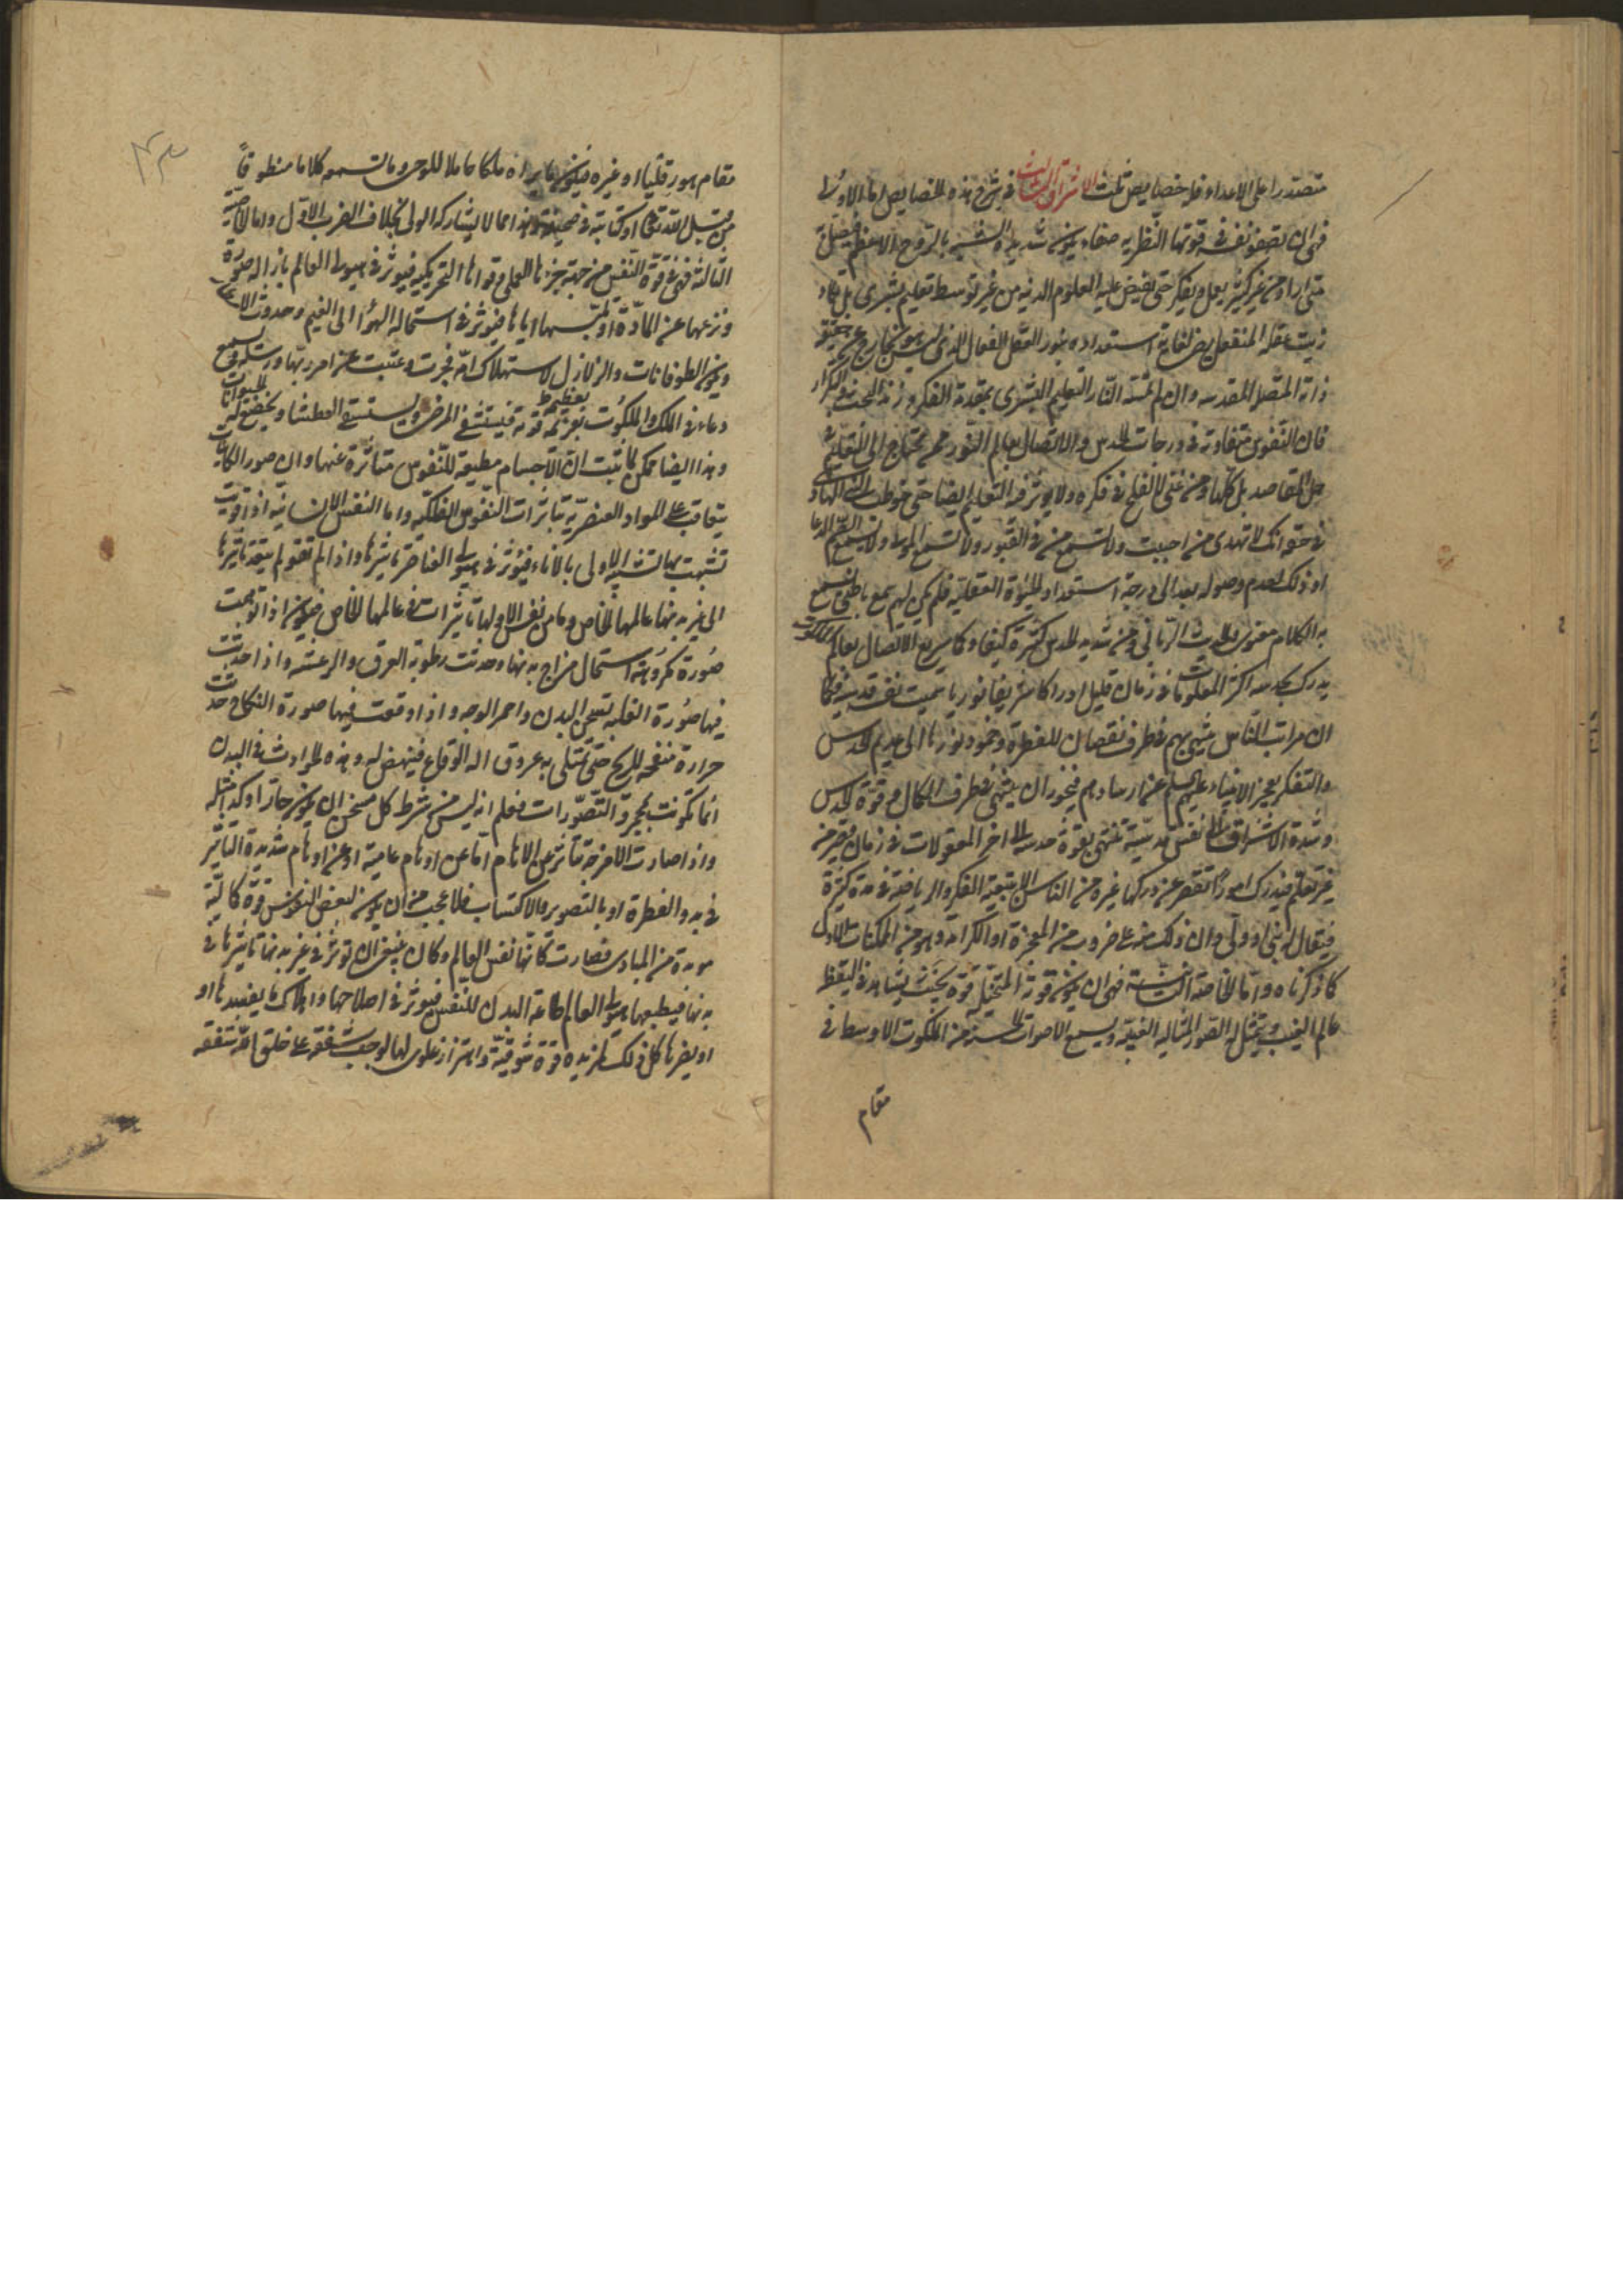 مقتدرا على الاعداء فله خصايص ثلث الاشراق الثالث فى شرح هذه الخصايص اما الاولى
فهى ان تصفو نفسه فى قوتها النظريه صفاء يكون شديدة الشبه بالروح الاعظم فيتصل به
متى اراد من غير كثير تعمل وتفكر حتى يفيض عليه العلوم اللدنيه من غير توسط تعليم بشرى بل يكاد
زيت عقله المنفعل يضئ لغاية استعداده بنور العقل الفعال الذى ليس هو بخارج عن حقيقة
ذاته المتصلة المقدسه وان لم تمسه نار التعليم البشرى بمقدحة الفكر وزند البحث والتكرار
فان النفوس متفاوتة فى درجات الحدس والاتصال بعالم النور فمن محتاج الى التعليم فى
جل المقاصد بل كلها ومن غبى لا يفلح فى فكره ولا يوثر فيه التعليم ايضا حتى خوطب النبى الهادى
فى حقه انك لا تهدى من احببت ولا تسمع من فى القبور ولا تسمع الموتى ولا تسمع الصم الدعا
او ذلك لعدم وصوله بعد الى درجة استعداد الحيوة العقلية فلم يكن لهم سمع باطنى يسمع
به الكلام معنوى والحديث الربانى ومن شديد الحدس كثيره كيفا وكما سريع الاتصال بعالم الملكوت
يدرك بحدسه اكثر المعلومات فى زمان قليل ادراكا شريفا نوريا سميت نفسه قدسية فكما
ان مراتب الناس ينتهى بهم فى طرف نقصان الفطرة وخمود نورها الى عديم الحدس
والتفكر يعجز الانبياء عليهم السلم عن ارشادهم فيجوز ان ينتهى فى طرف الكمال وقوة الحدس
وشدة الاشراق الى نفس قدسيّة تنتهى بقوة حدسه الى اخر المعقولات فى زمان قصير من
غير تعلم فيدرك امورا تقصر عن دركها غيره من الناس الا بتعب الفكر والرياضة فى مدة كثيرة
فيقال له نبى او ولى وان ذلك منه على ضروب من المعجزة او الكرامة وهو من الممكنات الاول
كما ذكرناه واما الخاصة الثانية فهى ان يكون قوته المتخيلة قوية بحيث يشاهد فى اليقظة
عالم الغيب ويتمثل له الصور المثاليه الغيبة ويسمع الاصوات الحسية من الملكوت الاوسط فى
مقام
مقام هورقليا او غيره فيكون ما يراه ملكا حاملا للوحى وما تسمعه كلاما منظوما
من قبل الله تعالى او كتابة فى صحيفة وهذا مما لا يشاركه الولى بخلاف الضرب الاول واما الخاصية
الثالثة فهى قوة النفس من جهة جزءها العملى وقواها التحريكية فيوثر فى هيولى العالم بازالة صورة
ونزعها عن المادة او تلبسها اياها فيوثر فى استحالة الهوا الى الغيم وحدوث الامطار
ويكون الطوفانات والزلازل لاستهلاك امة فجرت وعتت عن امر ربها ورسله ويسمع
دعاءه فى الملك والملكوت بعزيمه قوته فيستشفى المرضى ويستسقى العطشا ويخضع له الحيوانات
وهذا ايضا ممكن لما ثبت ان الاجسام مطيعة للنفوس متاثرة عنها وان صور الكاينات
يتعاقب على المواد العنصريه بتاثيرات النفوس الفلكيه واما النفس الانسانيه اذا قويت
تشبهت بها تشبه الاولى بالاناء فيؤثر فى هيولى العناصر تاثيرها واذا لم تقو لم يتعد تاثيرها
الى غير بدنها عالمها الخاص وما من نفس الا ولها تاثيرات فى عالمها الخاص فيكون اذا توهمت
صورة مكروهة استحال مزاج بدنها وحدثت رطوبة العرق والرعشه واذا حدثت
فيها صورة الغلبه تسخن البدن واحمر الوجه واذا وقعت فيها صورة النكاح حدثت
حرارة منفخه للريح حتى تمتلى به عروق اله الوقاع فينهض له وهذه الحوادث فى البدن
انما تكونت بمجرد التصورات فعلم انه ليس من شرط كل مسخن ان يكون حارا وكذا مثله
واذا صارت الامزجة تتاثر من الاوهام اما عن اوهام عامية او عن اوهام شديدة التاثير
فى بدو الفطرة او بالتصوير والاكتساب فلا عجب من ان يكون لبعض النفوس قوة كمالية
مويدة من المبادى فصارت كانها نفس العالم وكان ينبغى ان توثر فى غير بدنها تاثيرها فى
بدنها فيطيعها هيولى العالم طاعة البدن للنفس فيوثر فى اصلاحها واهلاك ما يفسدها او
او يضرها كل ذلك لمزيد قوة شوقية واهتزاز علوى لها لوجب شفقه على خلق الله شفقة